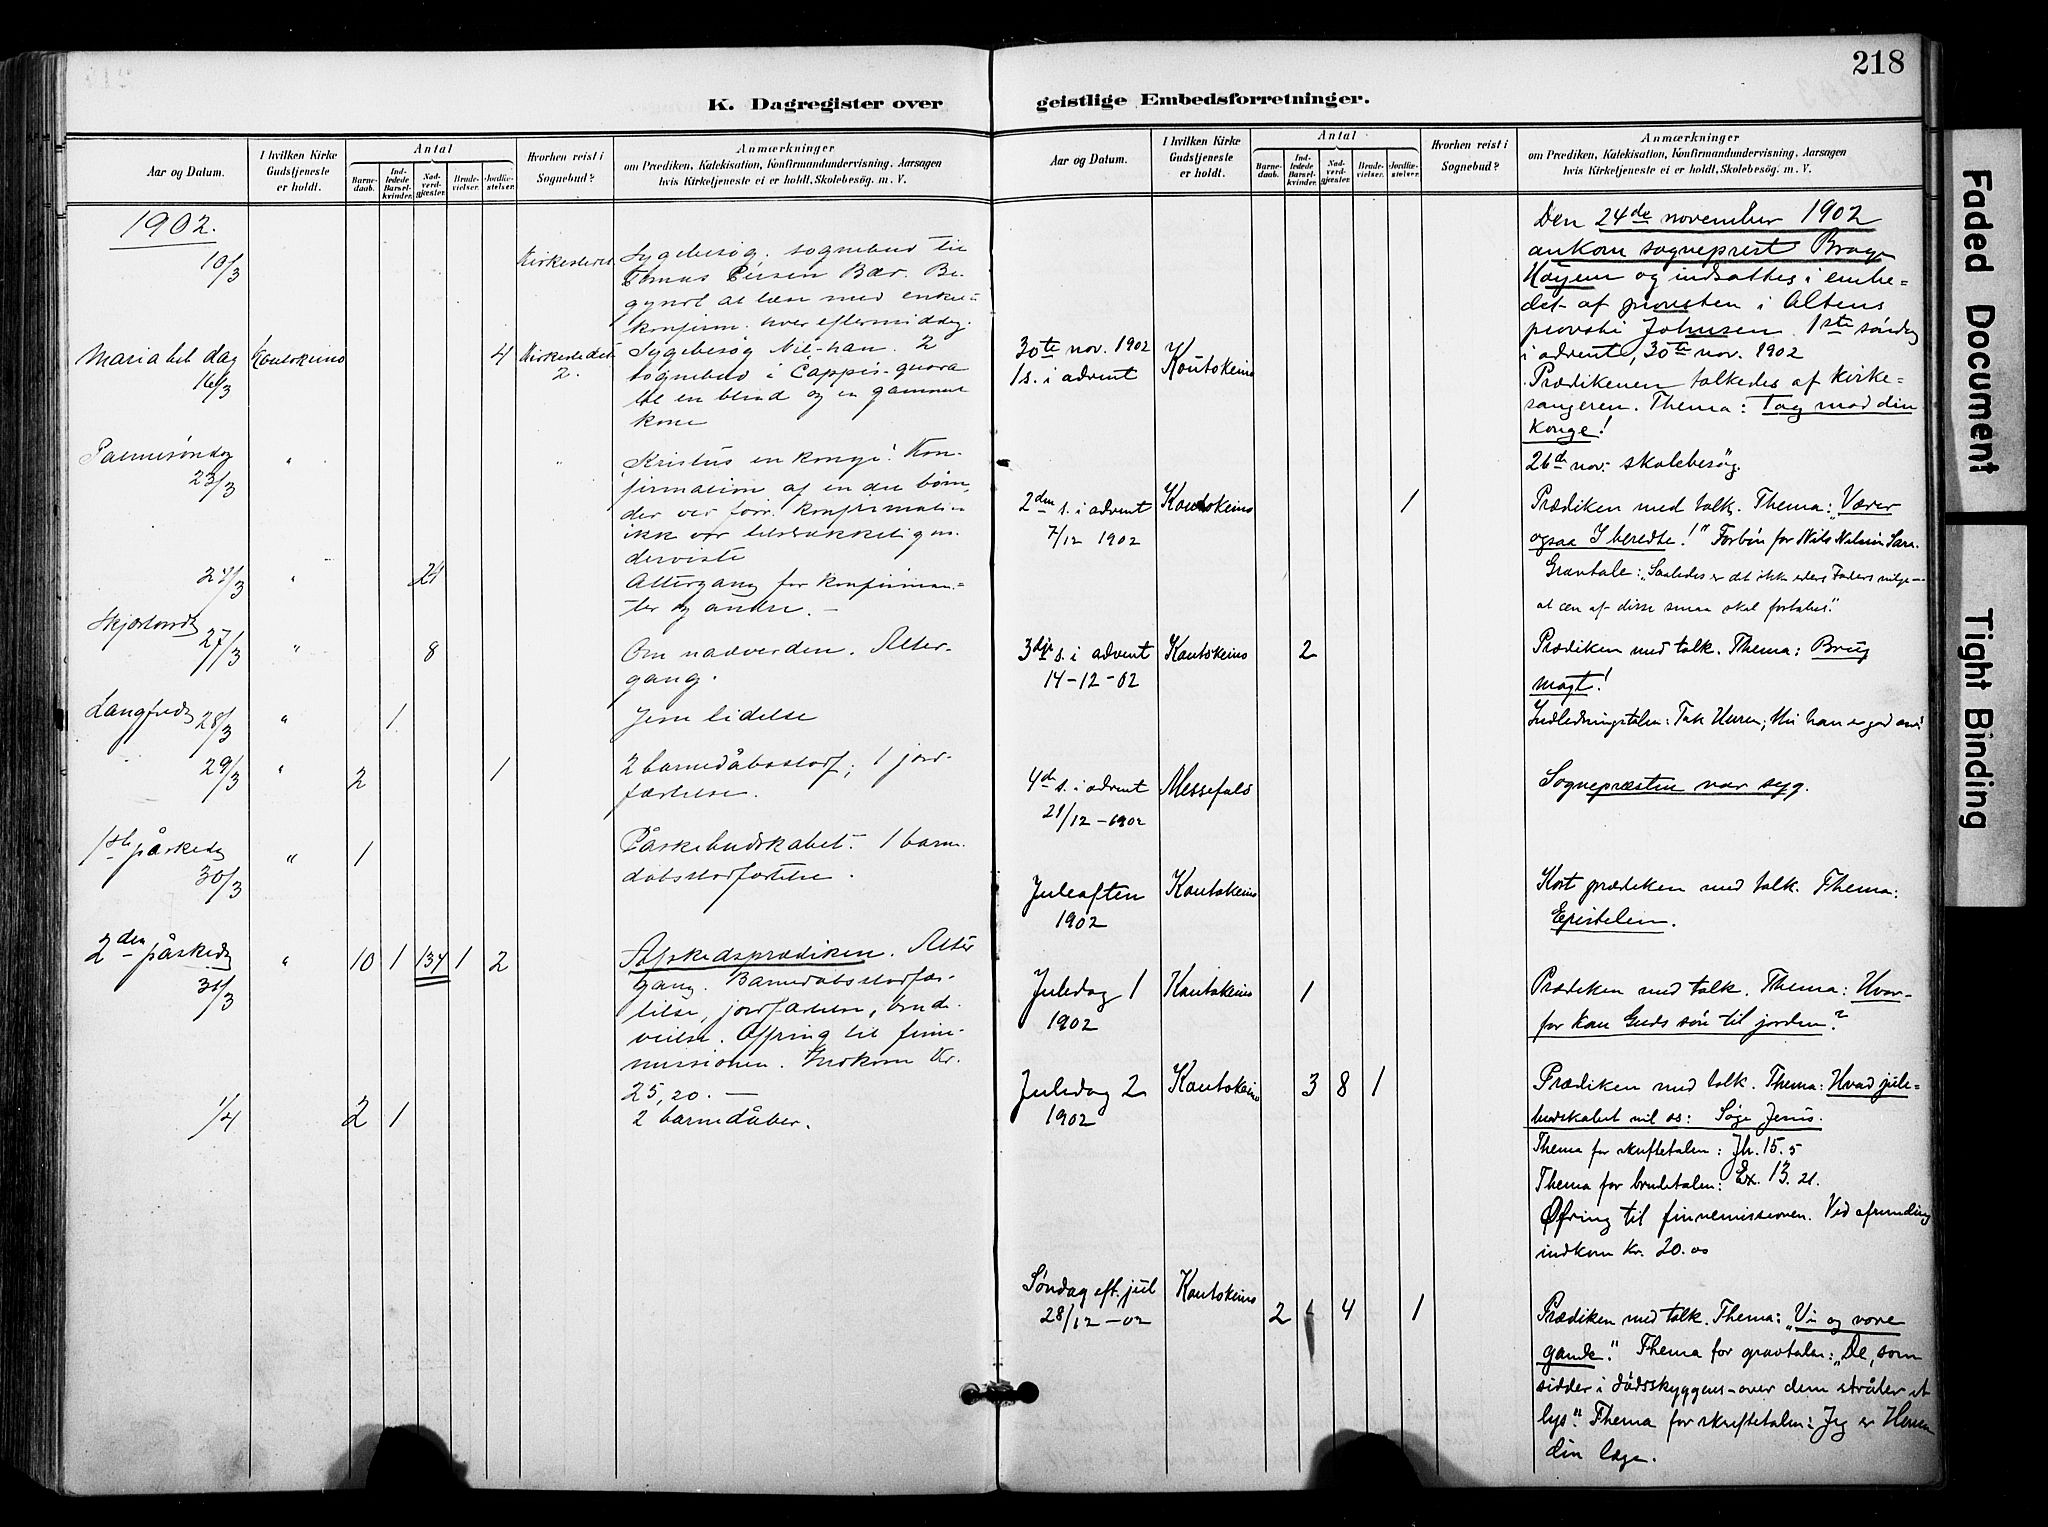 218
K. Dagregister over
geistlige Embedsforretninger.
Aar og Datum.
I hvilken Kirke
Gudstjeneste
er holdt.
Antal
Barne-
daab.
Ind-
ledede
Barsel-
kvinder.
Nad-
verd-
gjæster.
Brude-
vielser.
Jordfæ-
stelser.
Hvorhen reist i
Sognebud?
Anmærkninger
om Prædiken, Katekisation, Konfirmandundervisning, Aarsagen
hvis Kirketjeneste ei er holdt, Skolebesøg. m. V.
1902.
10/3
Kirkestedet
Sygebesøg, sognebud til
Tomas Persen Bær. Be-
gyndt at læse med enkel-
konfirm. hver eftermiddag.
Mariæ beb. dag
16/3
Koutokeino
4
Kirkestedet
2.
Sygebesøg Nil-han. 2
sognebud i Cappis-guora
til en blind og en gammel
kone
Palmesøndag
23/3
"
"
Kristus en konge! Kon-
firmation af en del børn,
der ved forr. konfirmation
ikke var tilstrækkelig un-
derviste
24/3
"
24
Altergang for konfirman-
ter og andre. —
Skjærtorsd.
27/3
"
8
Om nadverden. Alter-
gang.
Langfredag
28/3
"
1
Jesu lidelse
29/3
"
2
1
2 barnedåbsstadf; 1 jord-
fæstelse.
1ste påskedag
30/3
"
1
Påskebudskabet. 1 barne-
dåbsstadfæstelse.
2den påskedag
31/3
"
10 1 134 1 2
Afskedsprædiken. Alter
gang. Barnedåbsstadfæs-
telse, jordfæstelse, brud-
vielse. Offring til finne-
missionen. Indkom kr.
25,20. —
1/4
2 1
2 barnedåber.
Aar og Datum.
I hvilken Kirke
Gudstjeneste
er holdt.
Antal
Barne-
daab.
Ind-
ledede
Barsel-
kvinder.
Nad-
verd-
gjæster.
Brude-
vielser.
Jordfæ-
stelser.
Hvorhen reist i
Sognebud?
Anmærkninger
om Prædiken, Katekisation, Konfirmandundervisning, Aarsagen
hvis Kirketjeneste ei er holdt, Skolebesøg. m. V.
Den 24de november 1902
ankom sogneprest Brage
Høyem og indsattes i embe-
det af provsten i Altens
provsti Johnsen. 1ste søndag
i advent, 30te nov. 1902
30te nov. 1902
1 s. i advent
Koutokeino
Prædikenen tolkedes af kirke-
sangeren. Thema: Tag mod din
Konge!
26de nov. skolebesøg.
2den s. i advent
7/12 1902
Koutokeino
1
Prædiken med tolk. Thema: „Værer
ogsaa I beredte!" Forbøn for Nils Nilsen Sara.
Gravtale: „Saaledes er det ikke eders Faders vilje—
at een af disse smaa skal fortabes."
3dje s. i advent
14-12-02
Koutokeino
2
Prædiken med tolk. Thema: Brug
magt!
Indledningstalen: Tak Herren, thi han er god
4de s. i advent
21/12-1902
Messefald
Sognepræsten var syg.
Juleaften
1902
Koutokeino
Kort prædiken med tolk. Thema:
Epistelen.
Juledag 1
1902
Koutokeino
1
Prædiken med tolk. Thema: Hvor-
for kom Guds søn til jorden?
Juledag 2
1902
Koutokeino
3 8 1
Prædiken med tolk. Thema: Hvad jule-
budskabet vil os: Søge Jesus.
Thema for skriftetalen: Jh. 15.5
Thema for brudetalen: Ex. 13.21.
Øfring til finnemissionen. Ved afrunding
indkom kr. 20.00
Søndag eft. jul
28/12-02
Koutokeino
2 1 4 1
Prædiken med tolk. Thema: „Vi og vore
gamle." Thema for gravtalen: „De, som
sidder i dødsskyggens - over dem stråler et
lys". Thema for skriftetalen: Jeg er Herren
din læge.
Faded Document
Tight Binding